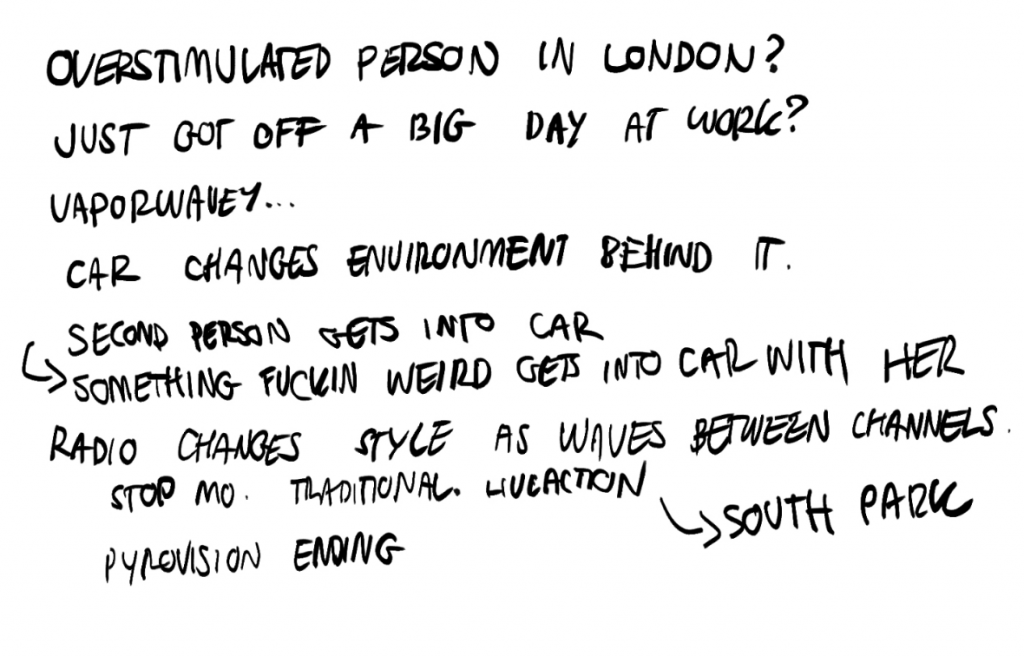 OVERSTIMULATED PERSON IN LONDON?
JUST GOT OFF A BIG DAY AT WORK?
VAPORWAVEY...
CAR CHANGES ENVIRONMENT BEHIND IT.
SECOND PERSON GETS INTO CAR
↳ SOMETHING FUCKIN WEIRD GETS INTO CAR WITH HER
RADIO CHANGES STYLE AS WAVES BETWEEN CHANNELS.
STOP MO. TRADITIONAL. LIVEACTION
↳ SOUTH PARK
PYROVISION ENDING